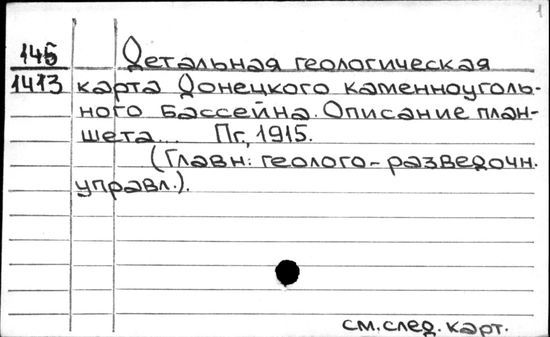 1
145
1413
Детальная геологическая
карта Донецкого каменноуголь-
ного бассейна. Описание план-
шета... Пг., 1915.
(Главн. геолого-разведочн.
управл.).
см. след. карт.